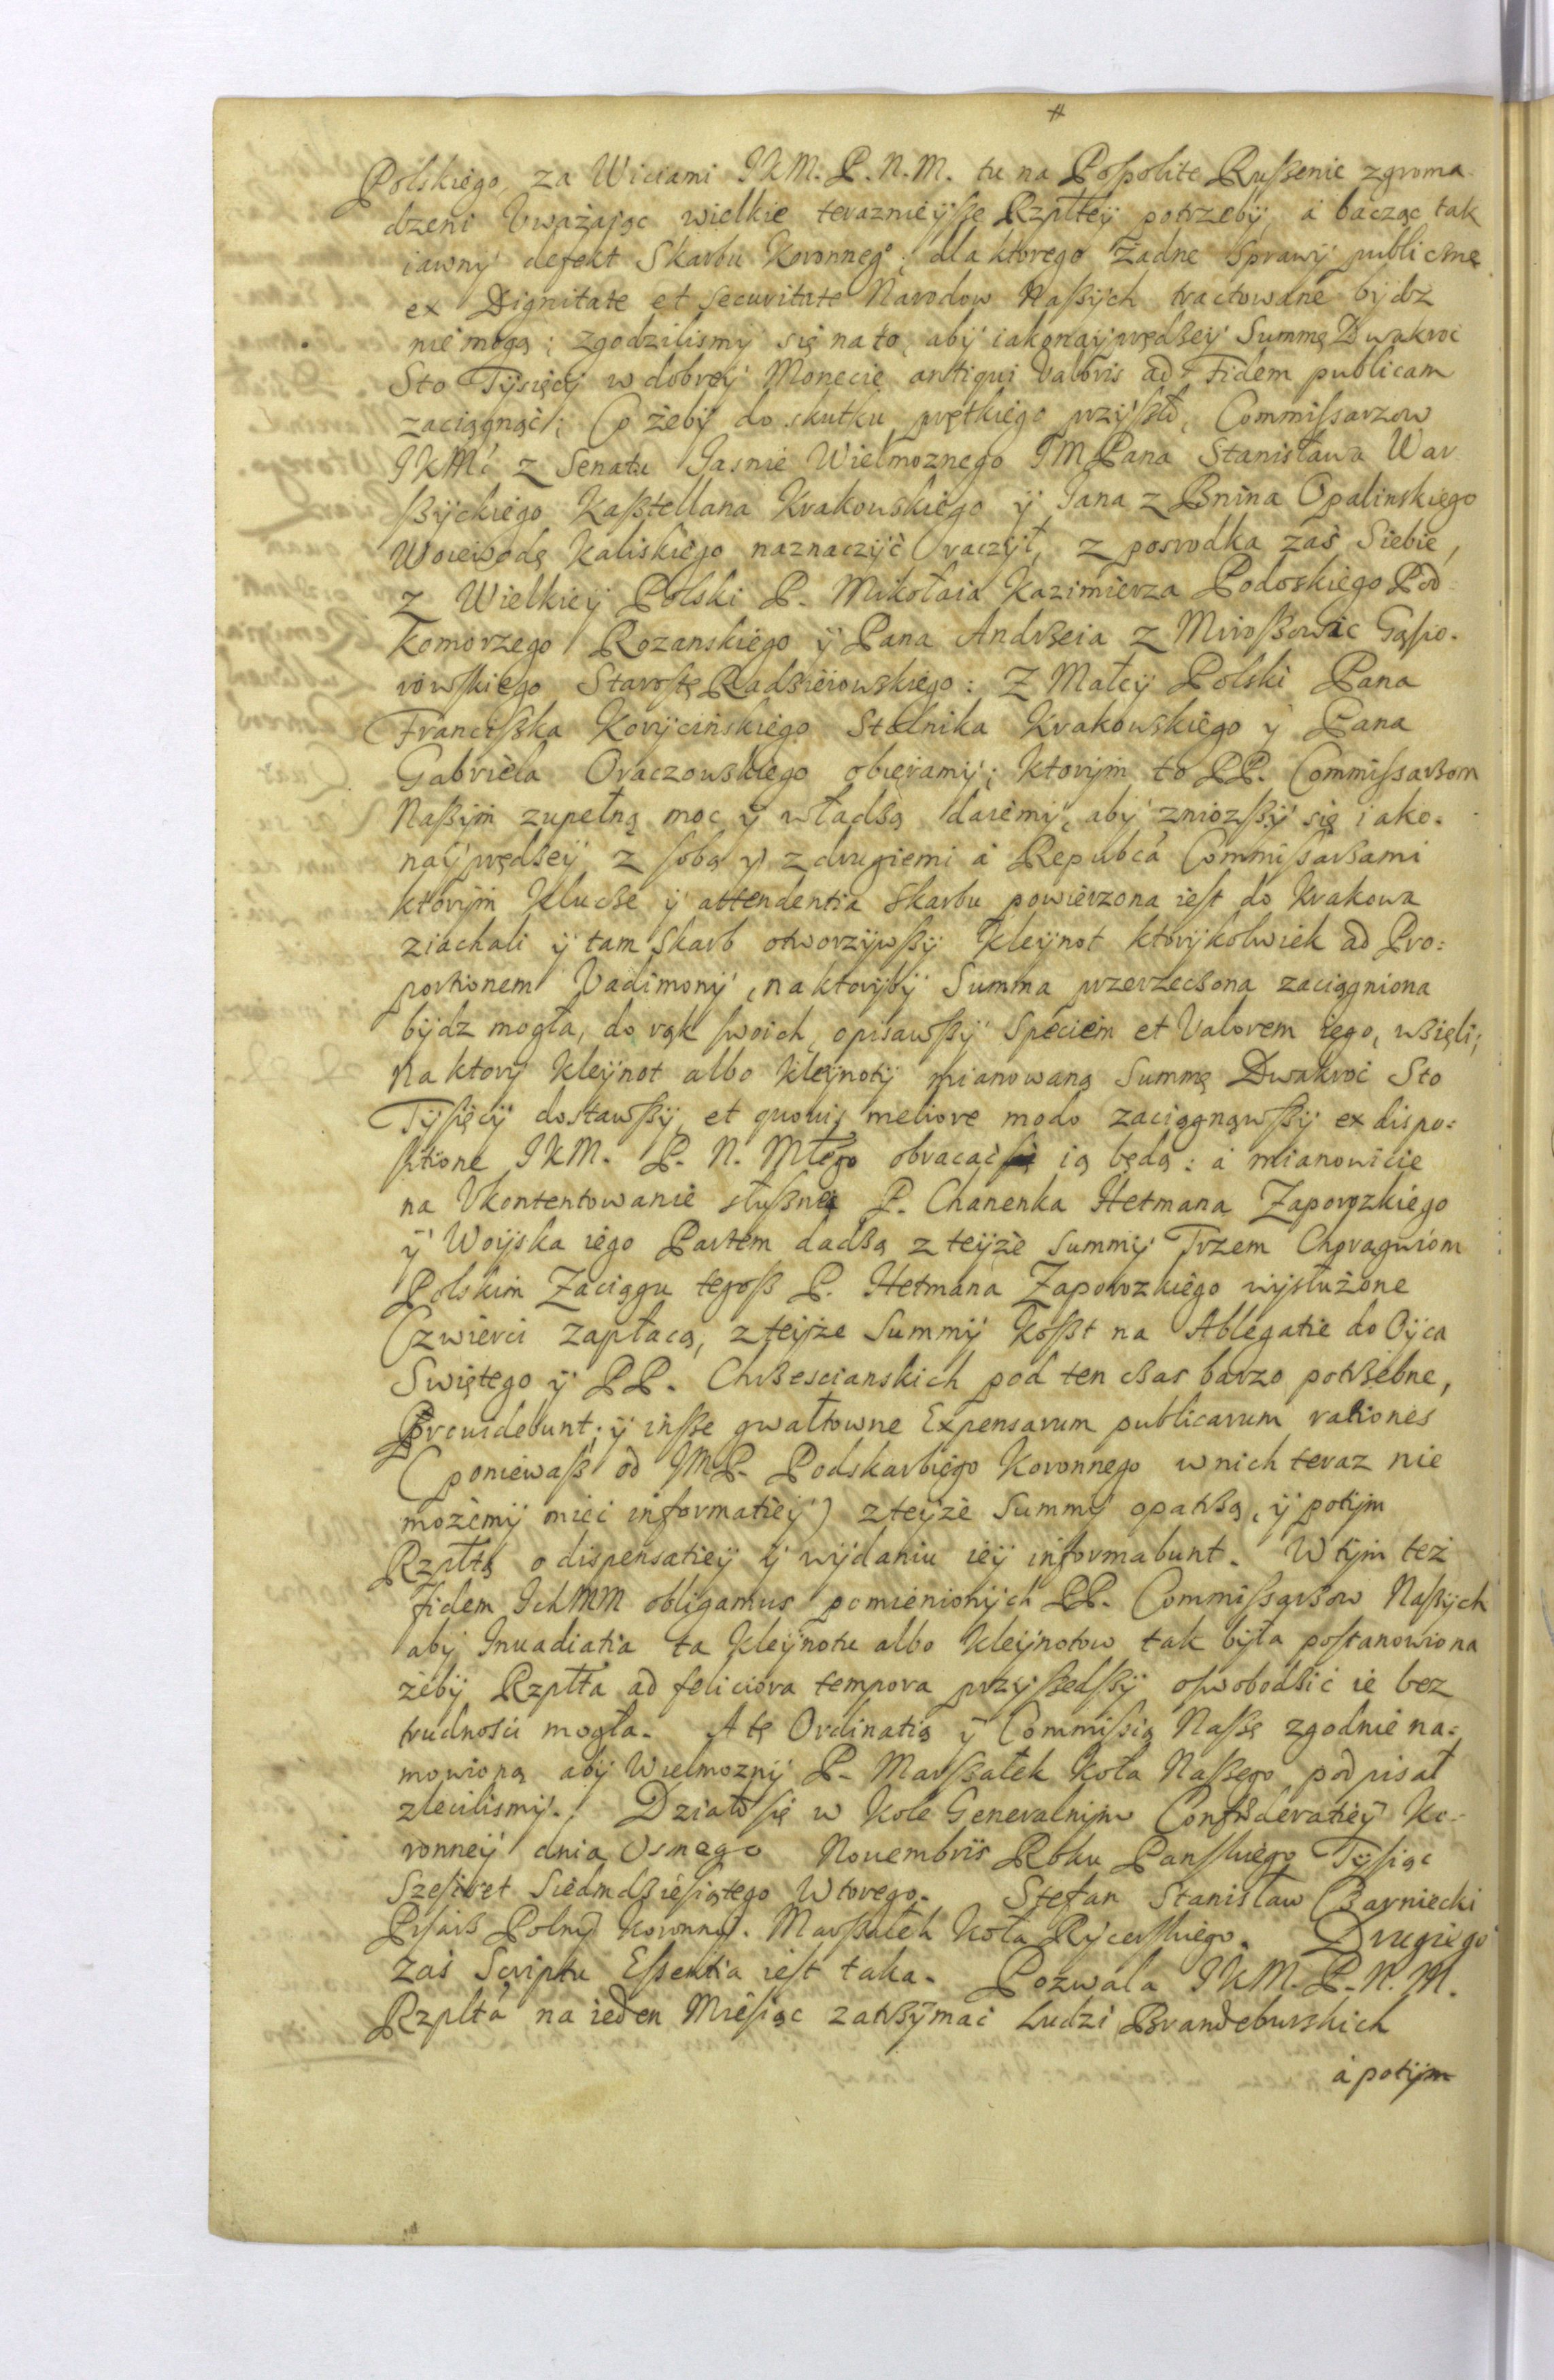 #
Polskiego, za Wiciami JKM. P. N. M. tu na Pospolite Rußenie zgroma-
dzeni Vważaiąc wielkie teraznieyße Rzpltey potrzeby, á bacząc tak
iawny defekt Skarbu Koronneg°; dla ktorego Żadne Sprawy publiczne
ex Dignitate et securitate Narodow Naßych tractowane bydz
nie mogą; zgodzilismy się na to, aby iakonayprędzey Summę Dwakroć
Sto Tysięcy w dobrey Monecie antiqui Valoris ad Fidem publicam
zaciągnąć; Co żeby do skutku prętkiego przyßło, Commissarzow
JKMći z Senatu Jasnie Wielmoznego JM Pana Stanisława War
ßyckiego Kaßtellana Krakowskiego y Jana z Bnina Opalinskiego
Woiewodę Kaliskiego naznaczyć raczył, z posrodka zaś Siebie,
z Wielkiey Polski P. Mikołaia Kazimierza Podoskiego Pod-
komorzego Rozanskiego y Pana Andrzeia z Mroßewic Gąsio-
rowskiego Starostę Radzieiowskiego: Z Małey Polski Pana
Francißka Korycińskiego Stolnika Krakowskiego y Pana
Gabriela Oraczowskiego obieramy; ktorym to PP. Commissarzom
Naßym zupełną moc y władzą daiemy, aby znioszßy się iako-
nayprędzey z sobą y z drugiemi á Republca Commissarzami
ktorym klucze y attendentia skarbu powierzona iest do Krakowa
ziachali y tam Skarb otworzywßy kleynot ktorykolwiek ad Pro:
portionem Vadimonij, na ktoryby Summa przerzeczona zaciągniona
bydz mogła, do rąk swoich, opisawßy Speciem et Valorem iego, wzięli;
Na ktory kleynot albo kleynoty mianowaną Summę Dwakroć Sto
Tysięcy dostawßy, et quouis meliore modo zaciągnąwßy ex dispo:
sitione JKM. P. N. Młgo obracać ią będą: á mianowicie
na Vkontentowanie słußne P. Chanenka Hetmana Zaporozkiego
y Woyska iego Partem dadzą z teyże Summy Trzem Chorągwiom
Polskim Zaciągu tegoß P. Hetmana Zaporozkiego wysłużone
Czwierci zapłacą, z teyże Summy koßt na Ablegatie do Oyca
Swiętego y PP. Chrzescianskich pod ten czas barzo potrzebne,
Prouidebunt; y inße gwałtowne Expensarum publicarum rationes
(poniewaß od JMP. Podskarbiego Koronnego w nich teraz nie
możemy mieć informatiey) z teyże Summy opatrzą, y potym
Rzpltą o dispensatiey y wydaniu iey informabunt. W tym też
fidem IchMM obligamus pomienionych PP. Commissarzow Naßych
aby Inuadiatia ta kleynotu albo kleynotow tak była postanowiona
żeby Rzplta ad feliciora tempora przyßedßy oswobodzić ie bez
trudności mogła. A tę Ordinatią y Commissią Naßę zgodnie na:
mowioną aby Wielmozny P. Marßałek Koła Naßego podpisał
zlecilismy. Działo się w Kole Generalnym Confoederatiey Ko-
ronney dnia Osmego Nouembris Roku Panskiego Tysiąc
Szesćset Siedmdziesiątego Wtorego. Stefan Stanisław Czarniecki
Pisarz Polny Koronny. Marßałek Koła Rycerskiego. Drugiego
zaś Scriptu Essentia iest taka. Pozwala JKM. P. N. M.
Rzplta na ieden Miesiąc zatrzymać Ludzi Brandeburskich
á potym